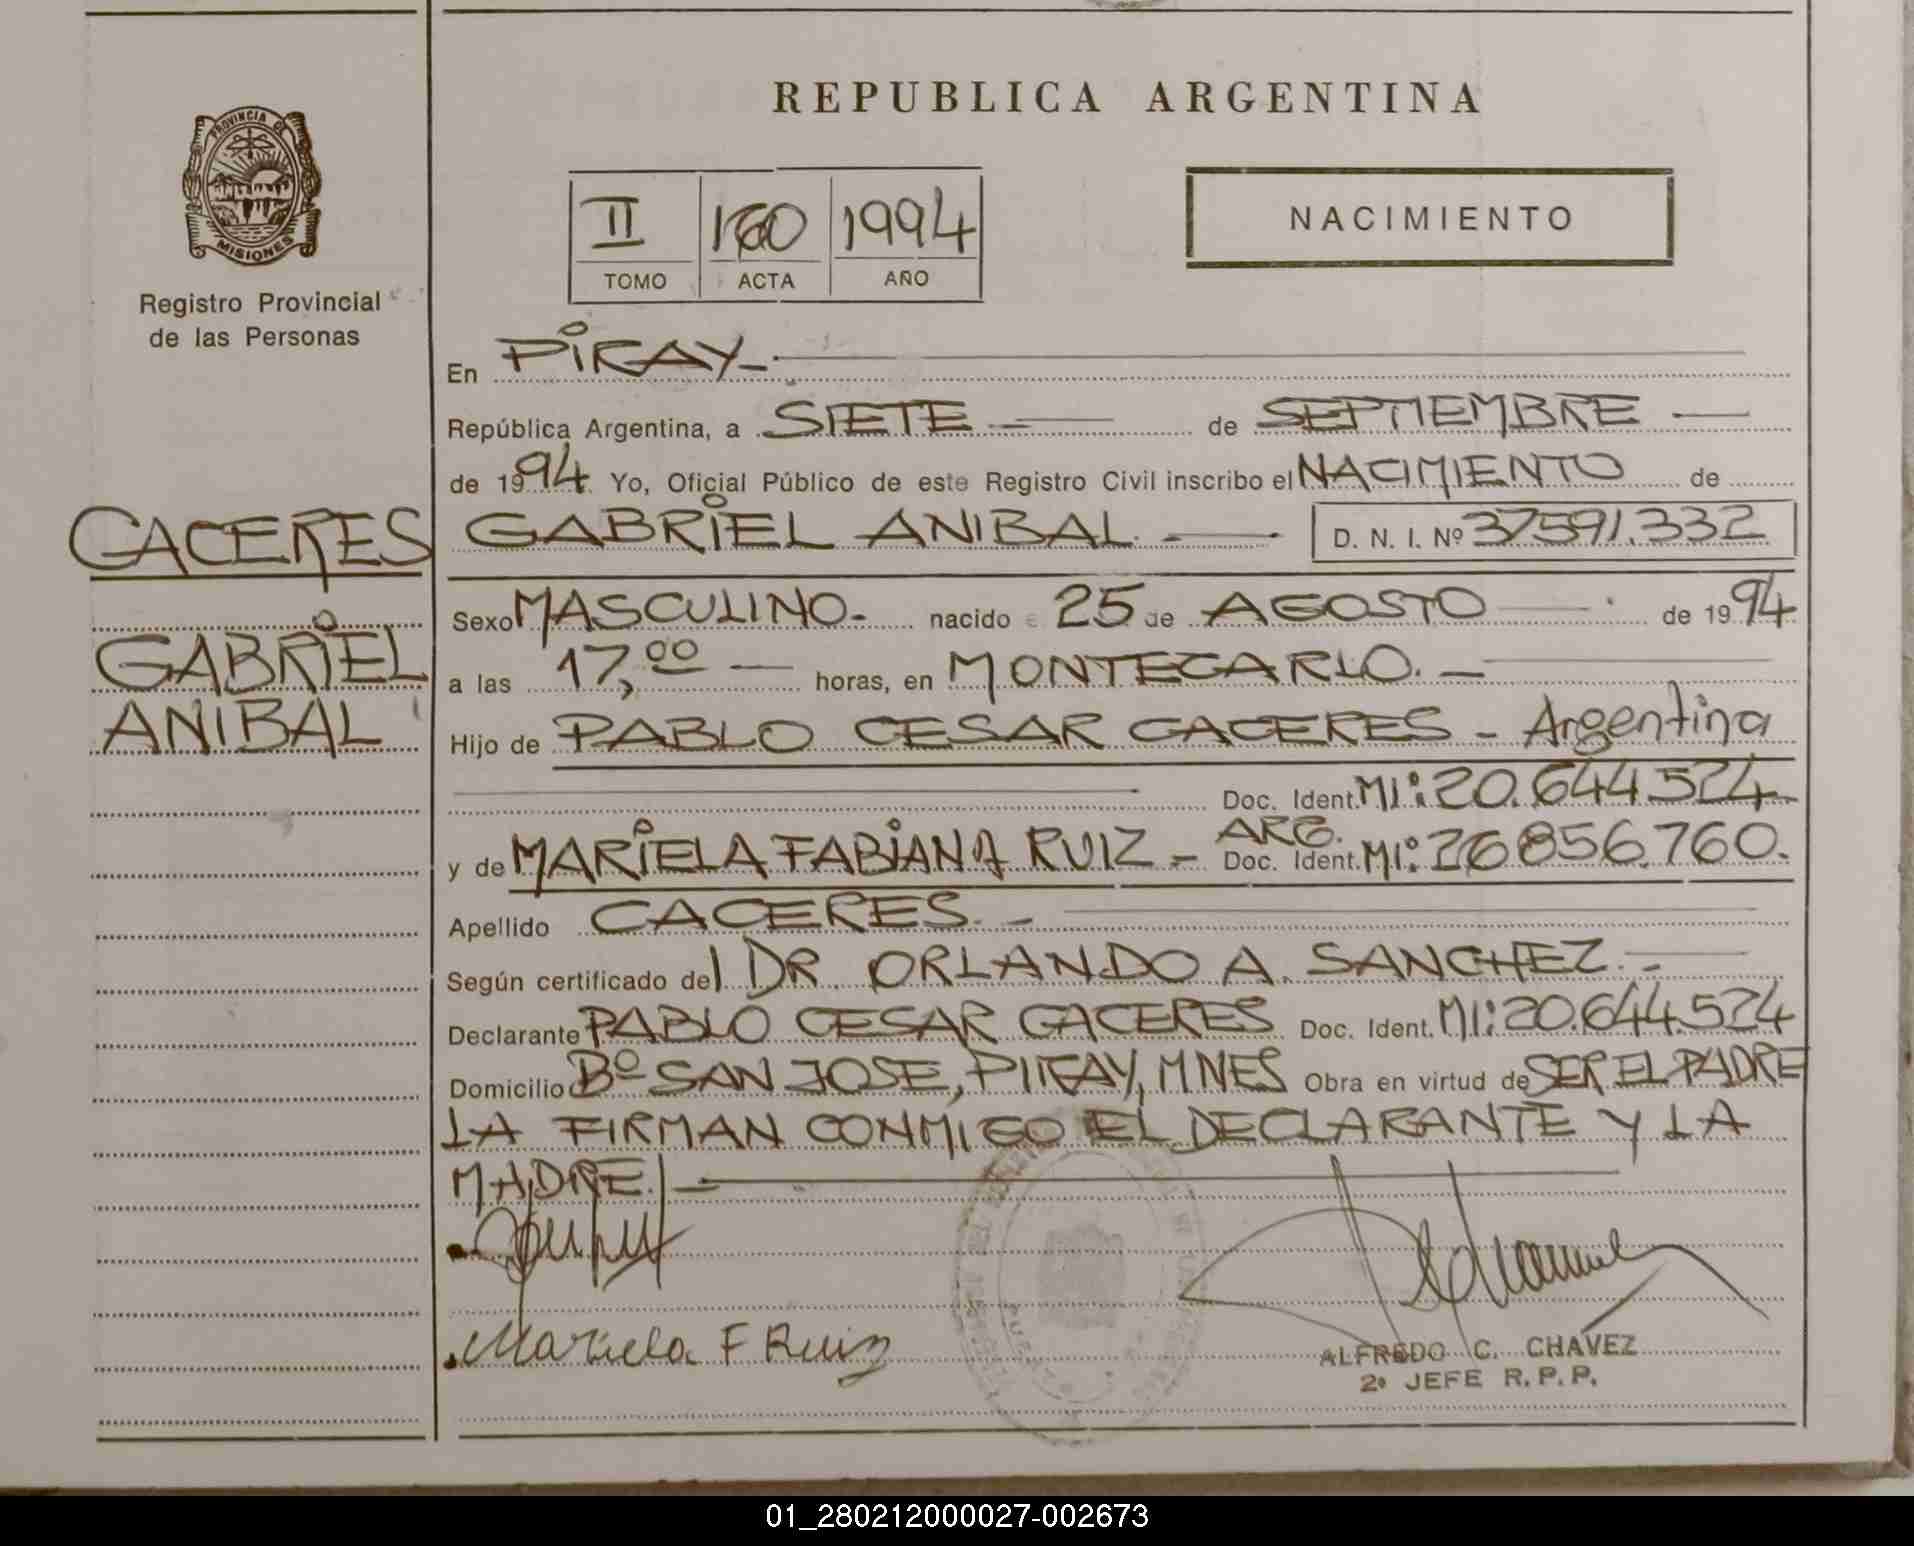 REPUBLICA ARGENTINA
PROVINCIA DE
MISIONES
Registro Provincial
de las Personas
II 160 1994
TOMO ACTA AÑO
NACIMIENTO
En PIRAY.-
República Argentina, a SIETE — de SEPTIEMBRE —
de 1994 Yo, Oficial Público de este Registro Civil inscribo el NACIMIENTO de
CACERES
GABRIEL ANIBAL
GABRIEL ANIBAL. — D. N. I. Nº 37591.332
Sexo MASCULINO.- nacido 25 de AGOSTO — de 1994
a las 17,00 — horas, en MONTECARLO. —
Hijo de PABLO CESAR CACERES - Argentina
Doc. Ident. MI: 20.644.524
y de MARIELA FABIANA RUIZ - ARG. Doc. Ident. MI: 26856.760.
Apellido CACERES. -
Según certificado del DR. ORLANDO A. SANCHEZ. -
Declarante PABLO CESAR CACERES Doc. Ident. MI: 20.644.524
Domicilio Bº SAN JOSE, PIRAY, MNES Obra en virtud de SER EL PADRE
LA FIRMAN CONMIGO EL DECLARANTE Y LA
MADRE. —
Mariela F Ruiz
ALFREDO C. CHAVEZ
2º JEFE R.P.P.
01_280212000027-002673